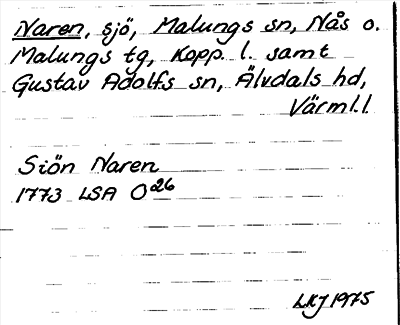 Naren, sjö, Malungs sn, Nås o.
Malungs tg, Kopp. l. samt
Gustav Adolfs sn, Älvdals hd,
Värml.l
Siön Naren
1773 LSA O26
LKJ 1975